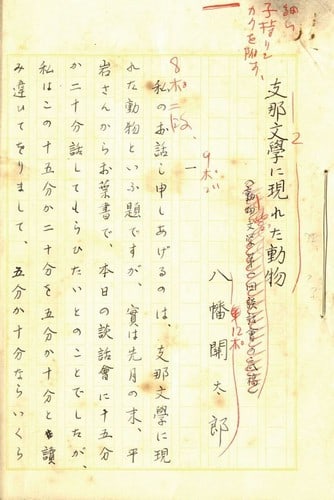 細ら
子持リー
カクを附す。
支那文學に現れた動物
2
八幡關太郎
単12ポ
9ポ
一
8ポ二段
私のお話し申しあげるのは、支那文學に現
れた動物といふ題ですが、實は先月の末、平
岩さんからお葉書で、本日の談話會に十五分
か二十分話してもらひたいとのことでしたが、
私はこの十五分か二十分を五分か十分と讀
み違ひてをりまして、五分か十分ならいくら